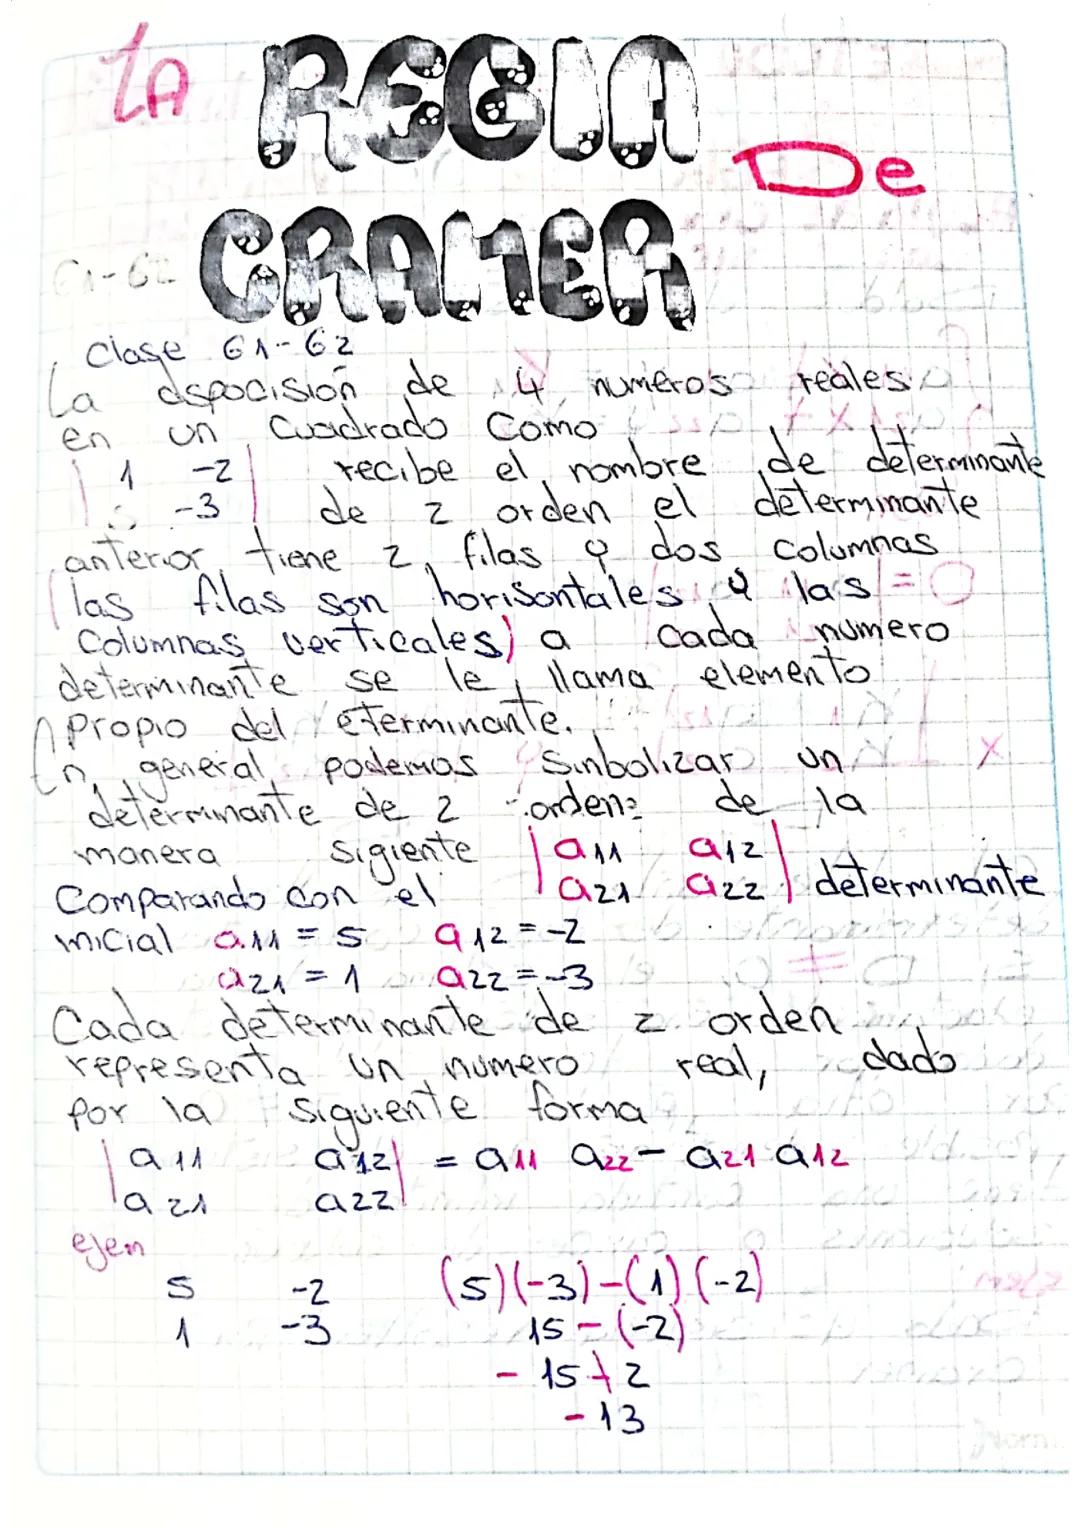 LA REGLA De
CRAMER
61-62
Clase 61-62
La dspocisión de 4 numeros reales
en un cuadrado Como
1 -2 recibe el nombre de determinante
5 -3 de 2 orden el determinante
anterior tiene 2 filas y dos columnas
las filas son horisontales y las
Columnas verticales) a cada numero
determinante se le llama elemento
Propio del eterminante.
En general podemos Sinbolizar un
determinante de 2 orden: de la
manera sigiente | a11 a12 |
Comparando con el | a21 a22 | determinante
inicial a11 = 5 a12 = -2
a21 = 1 a22 = -3
Cada determinante de 2 orden
representa un numero real, dado
por la siguiente forma
| a11 a12 | = a11 a22 - a21 a12
| a21 a22 |
ejem
5 -2 (5)(-3)-(1)(-2)
1 -3 15-(-2)
- 15+2
- 13